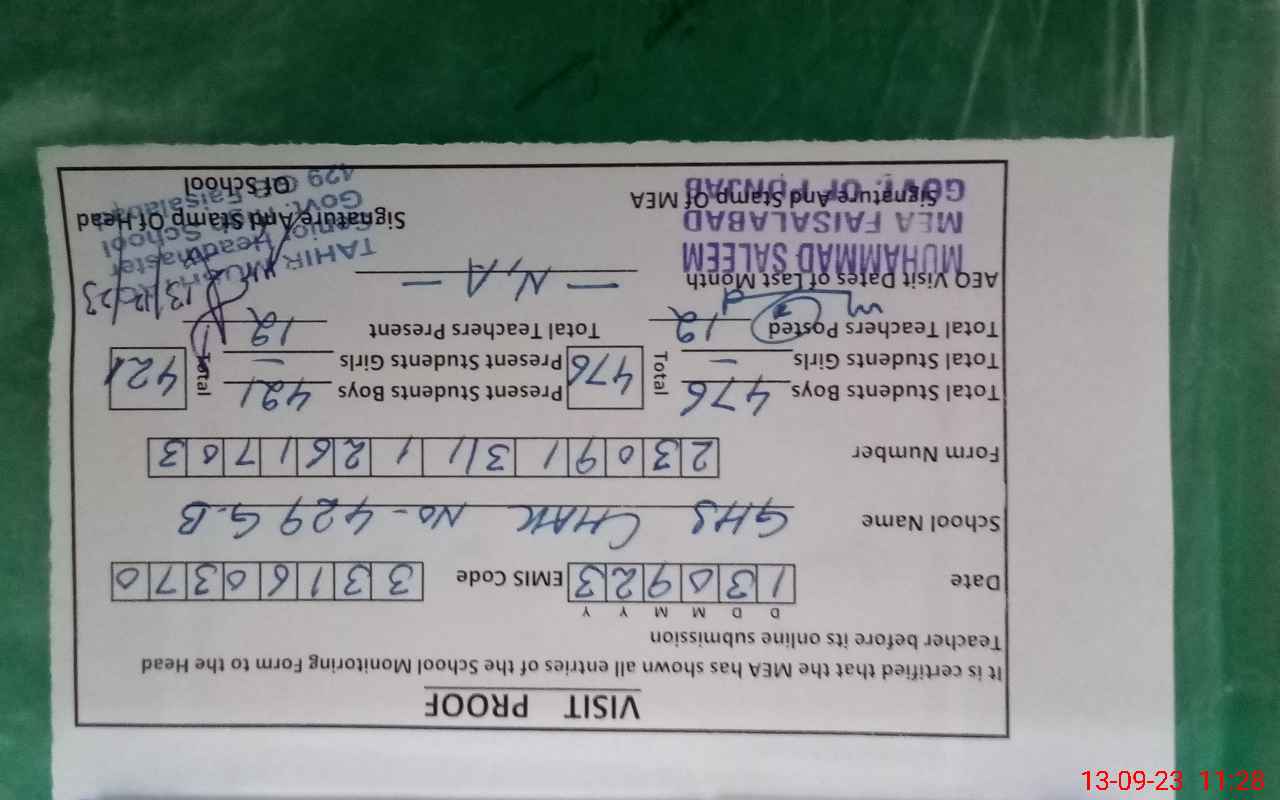 VISIT PROOF
It is certified that the MEA has shown all entries of the School Monitoring Form to the Head
Teacher before its online submission
D D M M Y Y
Date 1 3 0 9 2 3 EMIS Code 3 3 1 6 0 3 7 0
School Name GHS CHAK NO- 429 G-B
Form Number 2 3 0 9 1 3 1 1 1 2 6 1 7 0 3
Total Students Boys 476 Total 476 Present Students Boys 421 Total 421
Total Students Girls — Present Students Girls —
Total Teachers Posted 12 Total Teachers Present 12
AEO Visit Dates of Last Month — N,A —
MUHAMMAD SALEEM
MEA FAISALABAD
GOVT. OF PUNJAB
Signature And Stamp Of MEA
TAHIR
Senior Headmaster
Govt. School
429 Faisalabad
Signature And Stamp Of Head
Of School
13-09-23 11:28